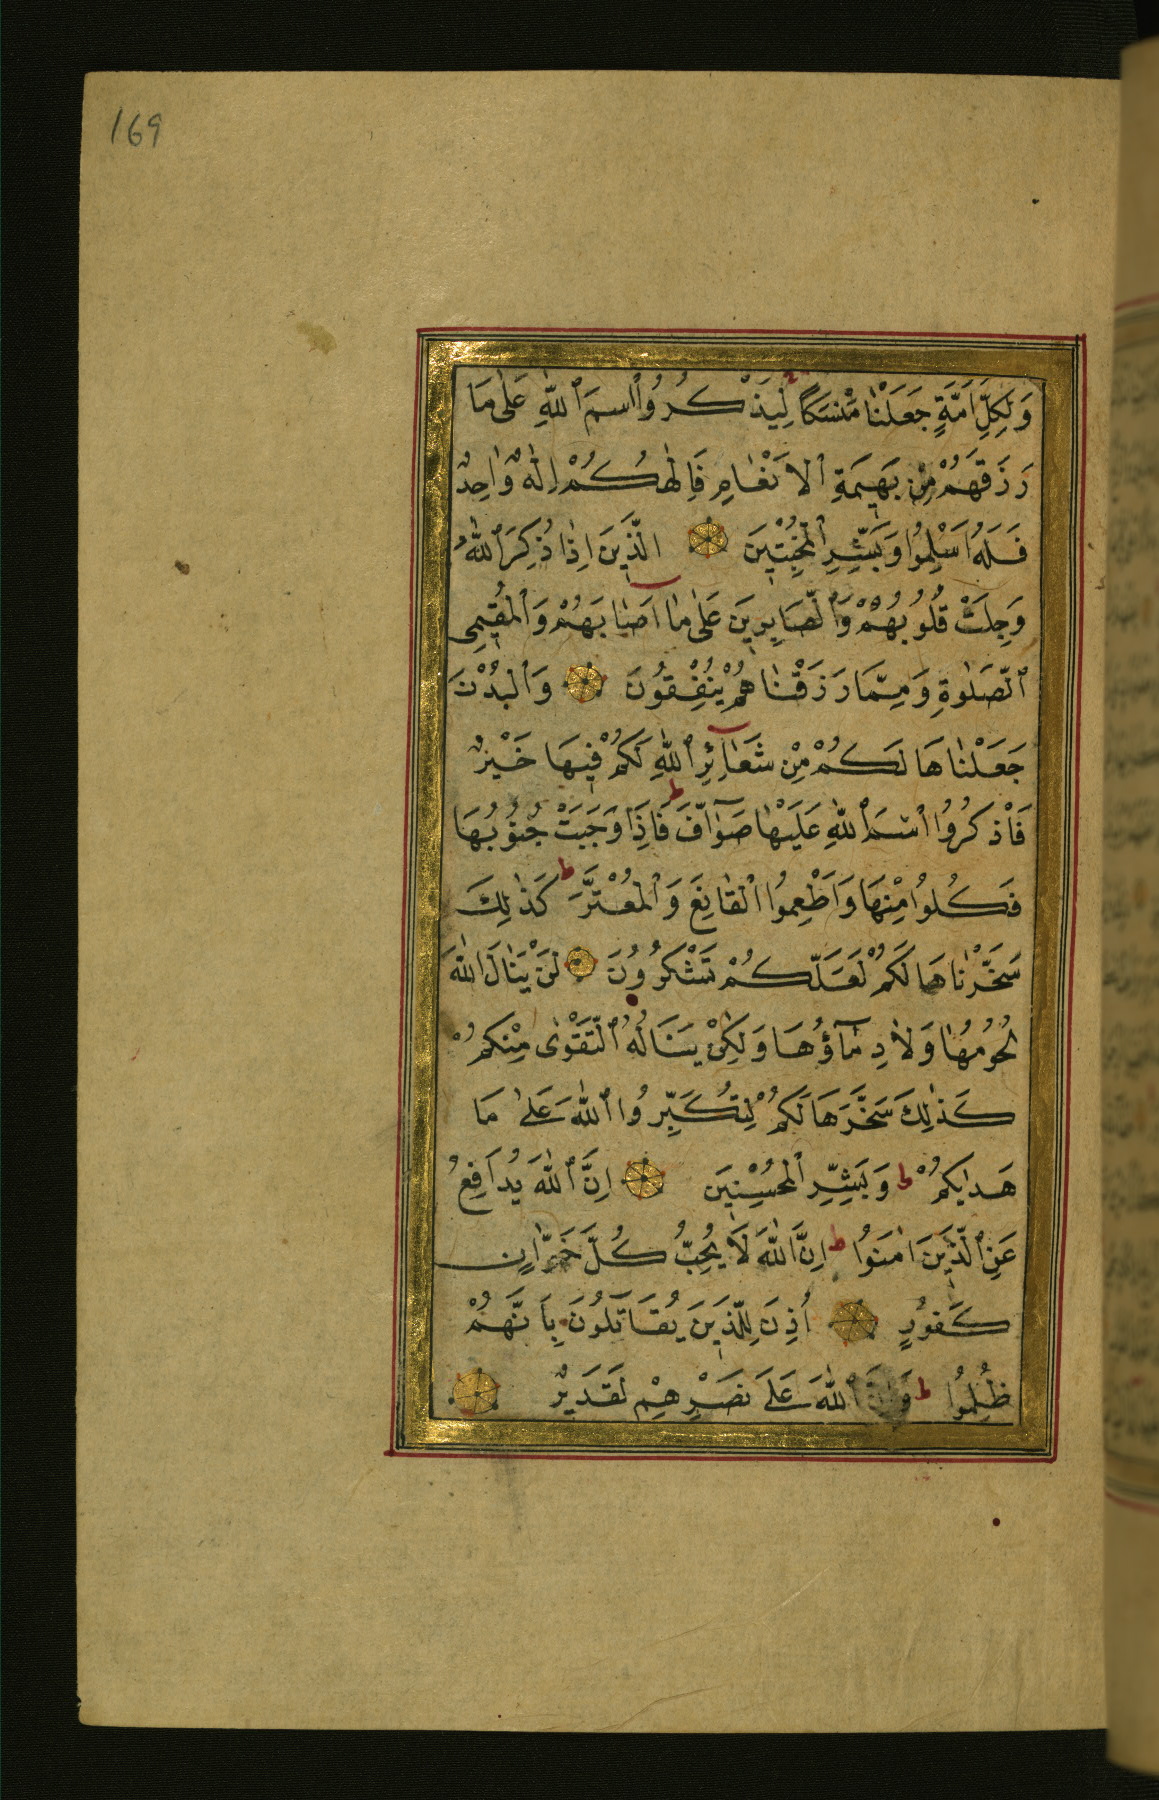 169
وَلِكُلِّ اُمَّةٍ جَعَلْنَا مَنْسَكًا لِيَذْكُرُوا اسْمَ اللّٰهِ عَلٰى مَا
رَزَقَهُمْ مِنْ بَهِيمَةِ الْاَنْعَامِ فَاِلٰهُكُمْ اِلٰهٌ وَاحِدٌ
فَلَهُ اَسْلِمُوا وَبَشِّرِ الْمُخْبِتِينَ الَّذِينَ اِذَا ذُكِرَ اللّٰهُ
وَجِلَتْ قُلُوبُهُمْ وَالصَّابِرِينَ عَلٰى مَا اَصَابَهُمْ وَالْمُقِيمِى
الصَّلٰوةِ وَمِمَّا رَزَقْنَاهُمْ يُنْفِقُونَ وَالْبُدْنَ
جَعَلْنَاهَا لَكُمْ مِنْ شَعَائِرِ اللّٰهِ لَكُمْ فِيهَا خَيْرٌ
فَاذْكُرُوا اسْمَ اللّٰهِ عَلَيْهَا صَوَافَّ ط فَاِذَا وَجَبَتْ جُنُوبُهَا
فَكُلُوا مِنْهَا وَاَطْعِمُوا الْقَانِعَ وَالْمُعْتَرَّ ط كَذٰلِكَ
سَخَّرْنَاهَا لَكُمْ لَعَلَّكُمْ تَشْكُرُونَ لَنْ يَنَالَ اللّٰهَ
لُحُومُهَا وَلَا دِمَاؤُهَا وَلٰكِنْ يَنَالُهُ التَّقْوٰى مِنْكُمْ
كَذٰلِكَ سَخَّرَهَا لَكُمْ لِتُكَبِّرُوا اللّٰهَ عَلٰى مَا
هَدٰيكُمْ ط وَبَشِّرِ الْمُحْسِنِينَ اِنَّ اللّٰهَ يُدَافِعُ
عَنِ الَّذِينَ اٰمَنُوا ط اِنَّ اللّٰهَ لَا يُحِبُّ كُلَّ خَوَّانٍ
كَفُورٍ اُذِنَ لِلَّذِينَ يُقَاتَلُونَ بِاَنَّهُمْ
ظُلِمُوا ط وَاِنَّ اللّٰهَ عَلٰى نَصْرِهِمْ لَقَدِيرٌ